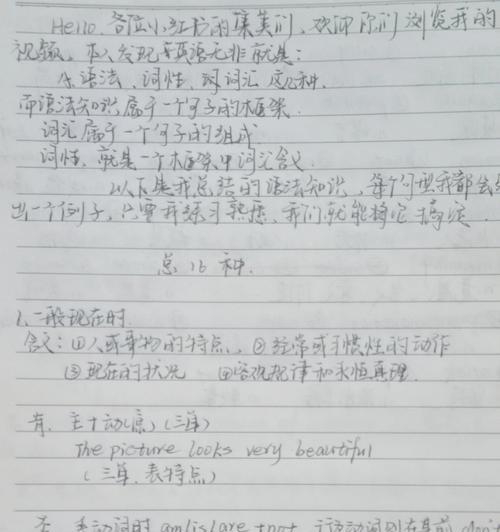 Hello 各位小红书的集美们，欢迎你们浏览我的
视频，本人发现英语无非就是：
从语法、词性、词汇 这几种.
而语法知识属于一个句子的框架.
词汇属于一个句子的组成
词性，就是一个框架中词汇含义.
以下是我总结的语法知识，每个句型我都会给
出一个例子，只要我练习熟悉，我们就能搞定
总16种.
1.一般现在时.
含义：①人或事物的特点、②经常或习惯性的动作
③现在的状况 ④客观规律和永恒真理.
肯. 主+动(原)(三单)
The picture looks very beautiful
(三单.表特点)
否. 系动词时 am/is/are+not